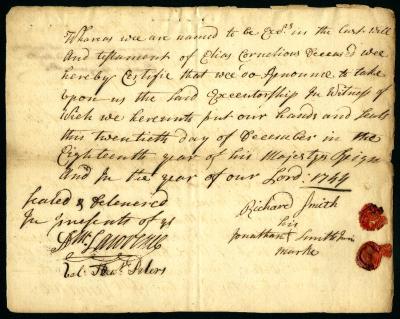 Whereas we are named to be Exors in the Last Will
And testament of Elias Cornelious Deceased wee
hereby Certifie that wee do Renounce to take
upon us the Said Executorship In Witness of
Wich we hereunto put our hands and Seals
this twentieth day of December in the
Eighteenth year of his Majestys Reign
And In the year of our Lord: 1744
Sealed & Delivered
In presents of us
Lawrence
Peters
Richard Smith
his
Jonathan Smith
marke